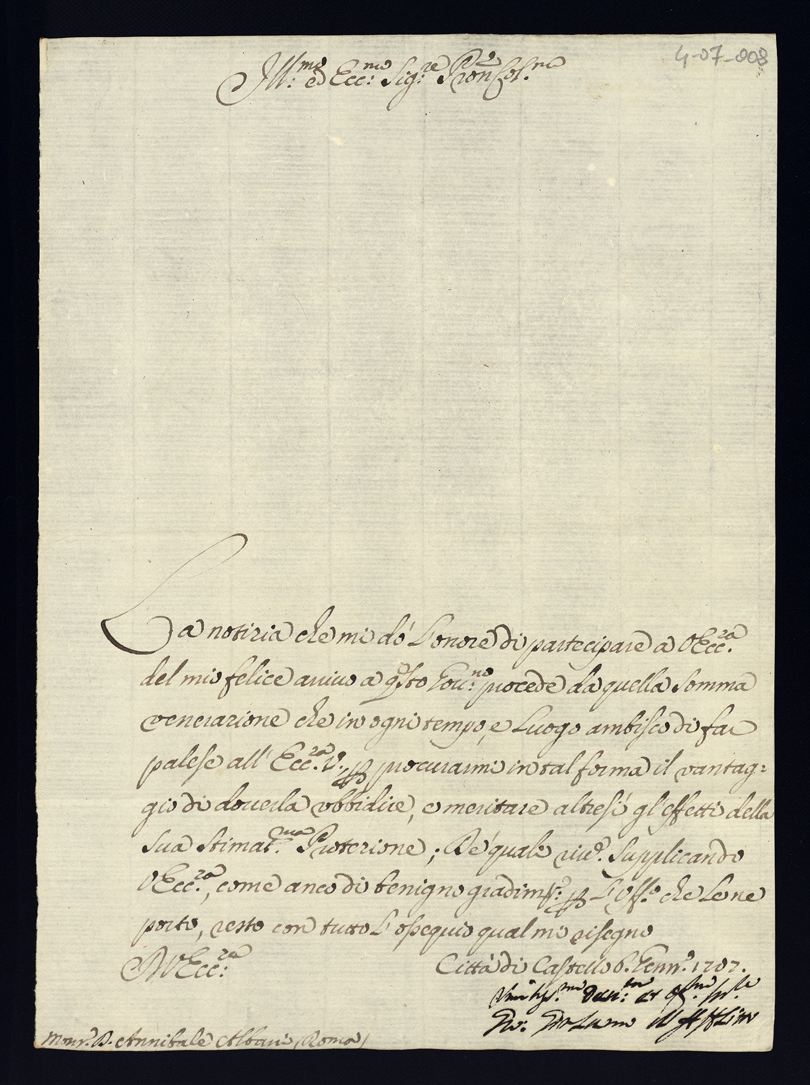 4-07-008
Ill:mo ed Ecc:mo Sig:re Pron Col.mo
La notizia che mi dò l'onore di partecipare a V Ecc:za
del mio felice arrivo a q.sto Gov:no procede da quella somma
venerazione che in ogni tempo, e Luogo ambisco di far
palese all' Ecc:za V., procurarmi in tal forma il vantag:
gio di doverla ubbidire, e meritare altresì gl'effetti della
sua stimat:ma Protezione; De' quale supplicando
V Ecc:za, come anco di benigno gradim.to l'Off.o che le ne
porto, resto con tutto l'ossequio qual mi risegno
Di V Ecc:za
Città di Castello 6. Genn.o 1707.
Monr. D. Annibale Albani (Roma)